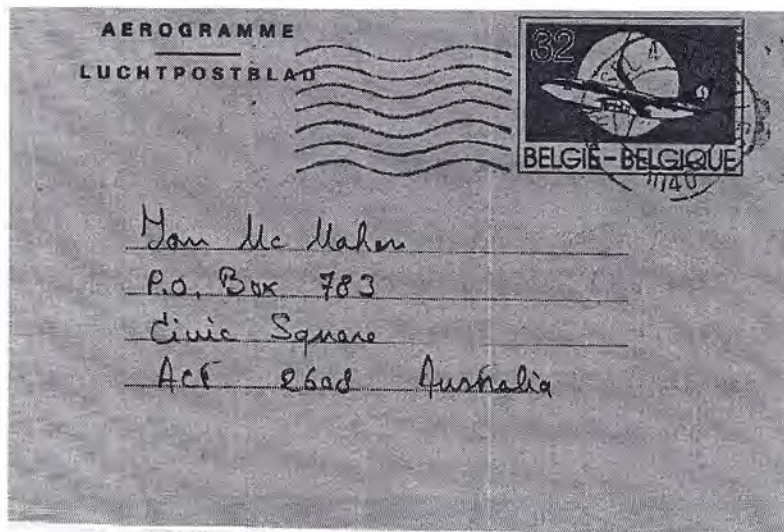 AEROGRAMME
LUCHTPOSTBLAD
32
BELGIË-BELGIQUE
1140
Mc Mahon
P.O. Box 783
Civic Square
ACT 2608 Australia